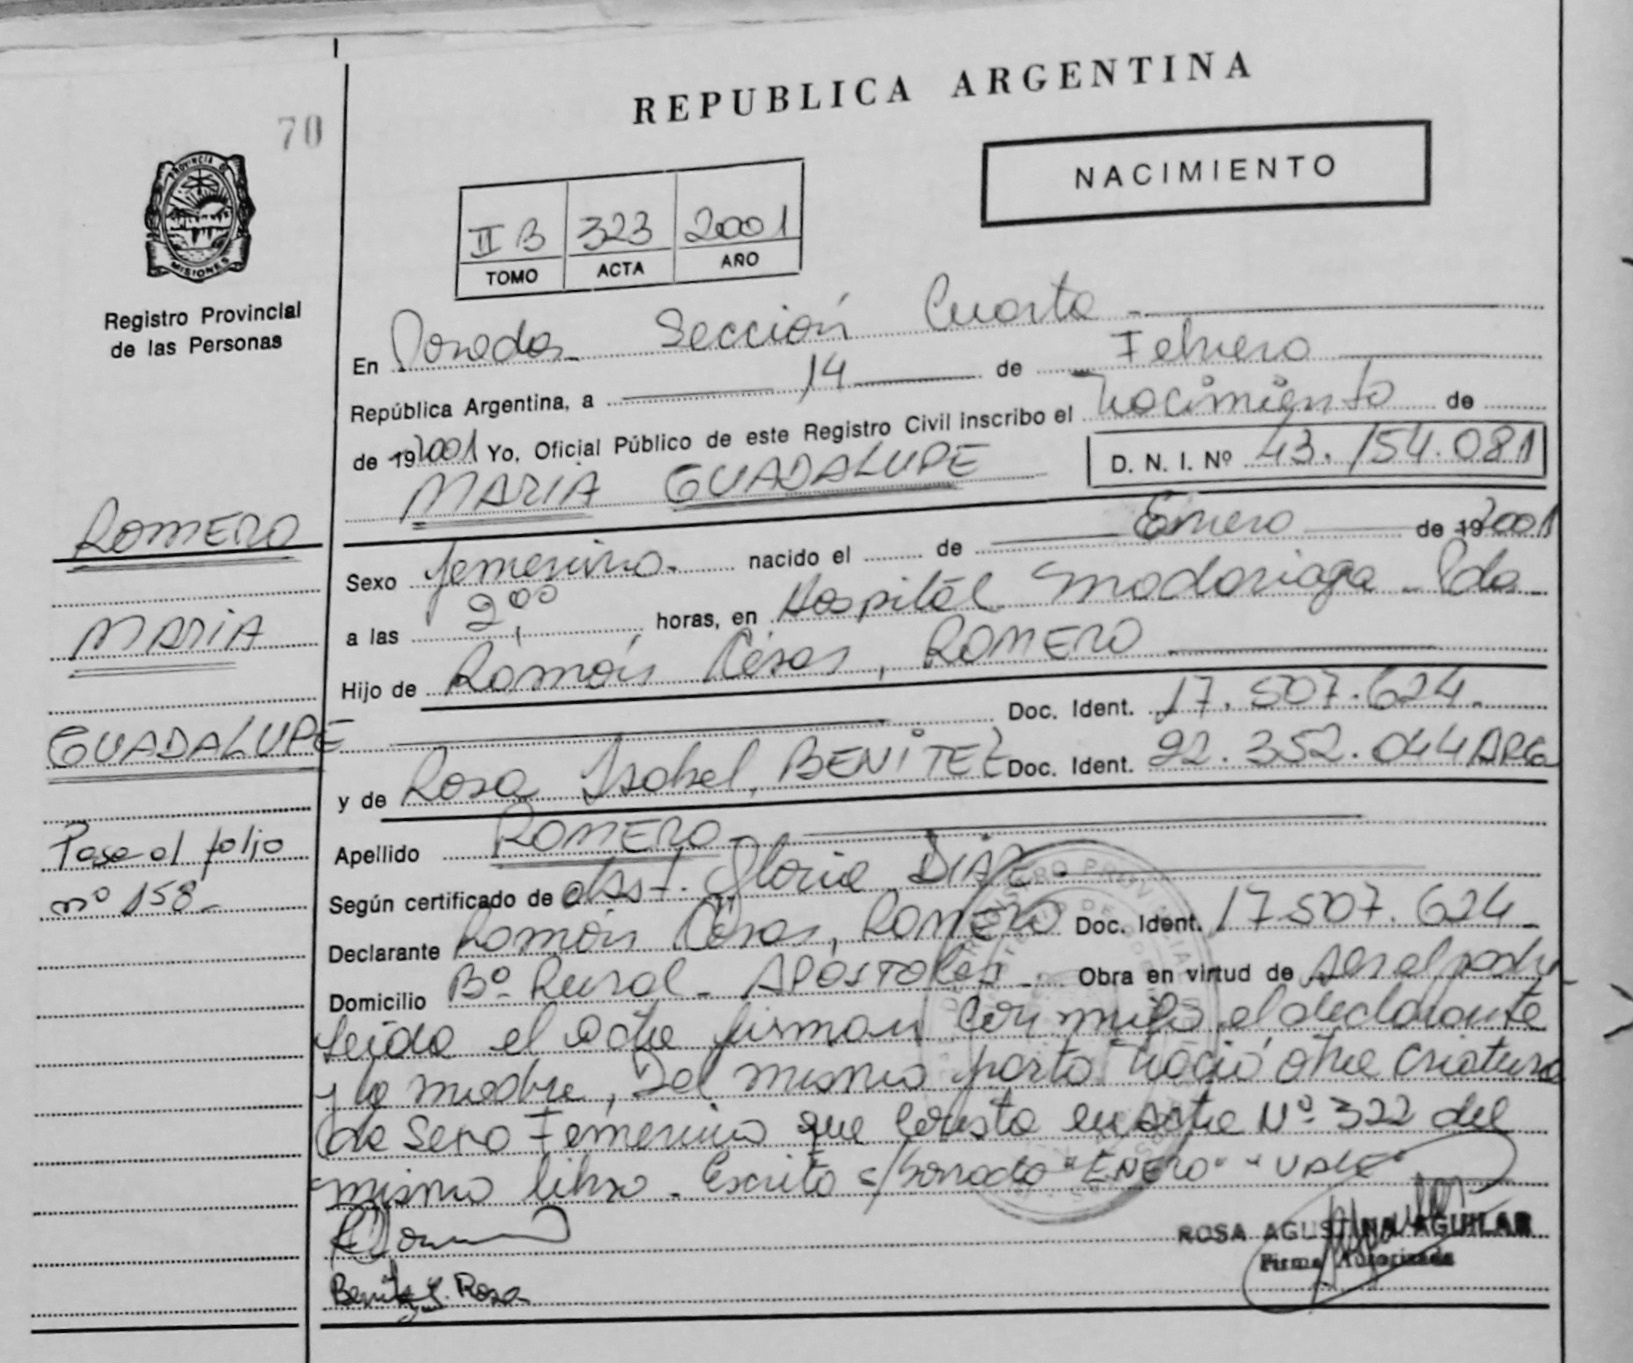 REPUBLICA ARGENTINA
70
NACIMIENTO
PROVINCIA DE
MISIONES
II B 323 2001
TOMO ACTA AÑO
Registro Provincial
de las Personas
En Posadas Sección Cuarta
República Argentina, a 14 de Febrero
de 192001 Yo, Oficial Público de este Registro Civil inscribo el Nacimiento de
MARIA GUADALUPE D. N. I. Nº 43.154.081
ROMERO
Sexo femenino. nacido el de Enero de 192001
MARIA
a las 2,00 horas, en Hospital Madariaga - Pdas
Hijo de Ramón César, ROMERO
Doc. Ident. 17.507.624.
GUADALUPE
y de Rosa Isabel, BENITEZ Doc. Ident. 92.352.044 ARG
Apellido ROMERO
Pase al folio
nº 158
Según certificado de obst. Gloria DIAZ
Declarante Ramón César, ROMERO Doc. Ident. 17.507.624
Domicilio Bº Rural - APÓSTOLES Obra en virtud de ser el padre
Leída el acta firman conmigo el declarante
y la madre, Del mismo parto nació otra criatura
de sexo Femenino que consta en acta Nº 322 del
mismo libro. Escrito s/borrado "ENERO" "VALE"
ROSA AGUSTINA AGUILAR
Firma Autorizada
Benitez Rosa